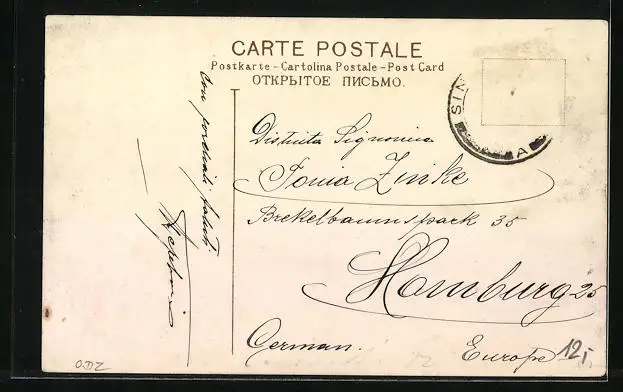 CARTE POSTALE
Postkarte – Cartolina Postale – Post Card
ОТКРЫТОЕ ПИСЬМО.
Con cordiali saluti
SIN A
Distinta Signorina
Tonia Zinke
Brekelbaumspark 35
Hamburg 25
German. Europe
12,-
O.DZ